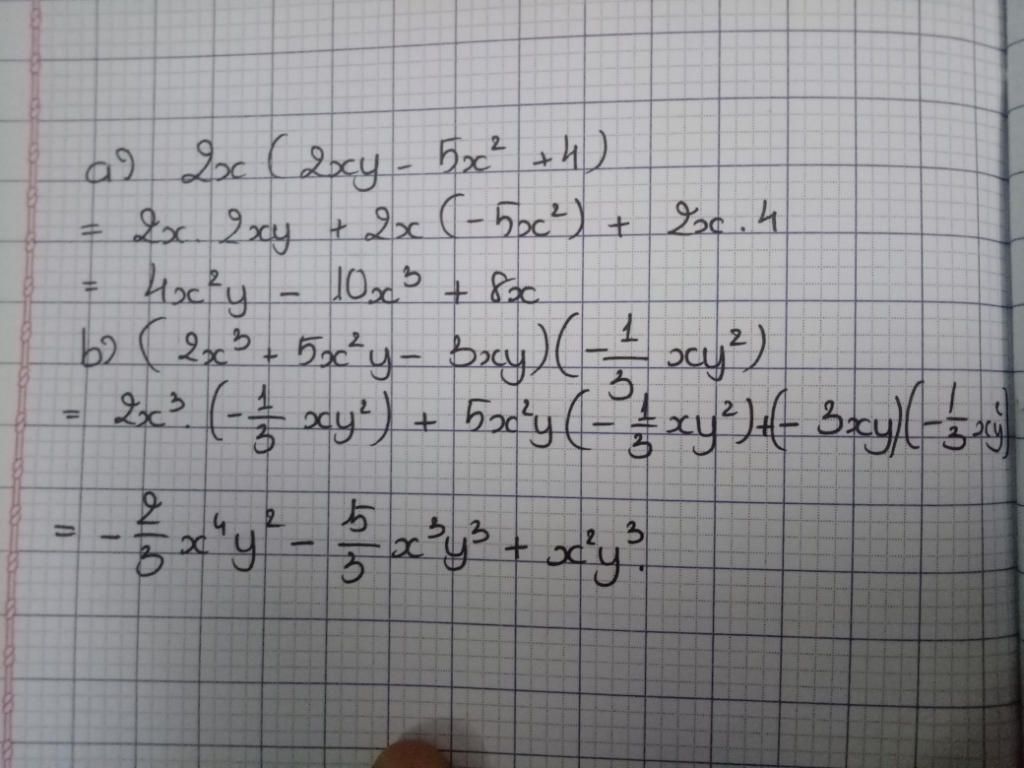 a) 2x (2xy - 5x² + 4)
= 2x. 2xy + 2x (-5x²) + 2x . 4
= 4x²y - 10x³ + 8x
b) (2x³ + 5x²y - 3xy)(-1/3 xy²)
= 2x³. (-1/3 xy²) + 5x²y (-1/3 xy²) + (- 3xy)(-1/3 xy²)
= -2/3 x⁴y² - 5/3 x³y³ + x²y³.